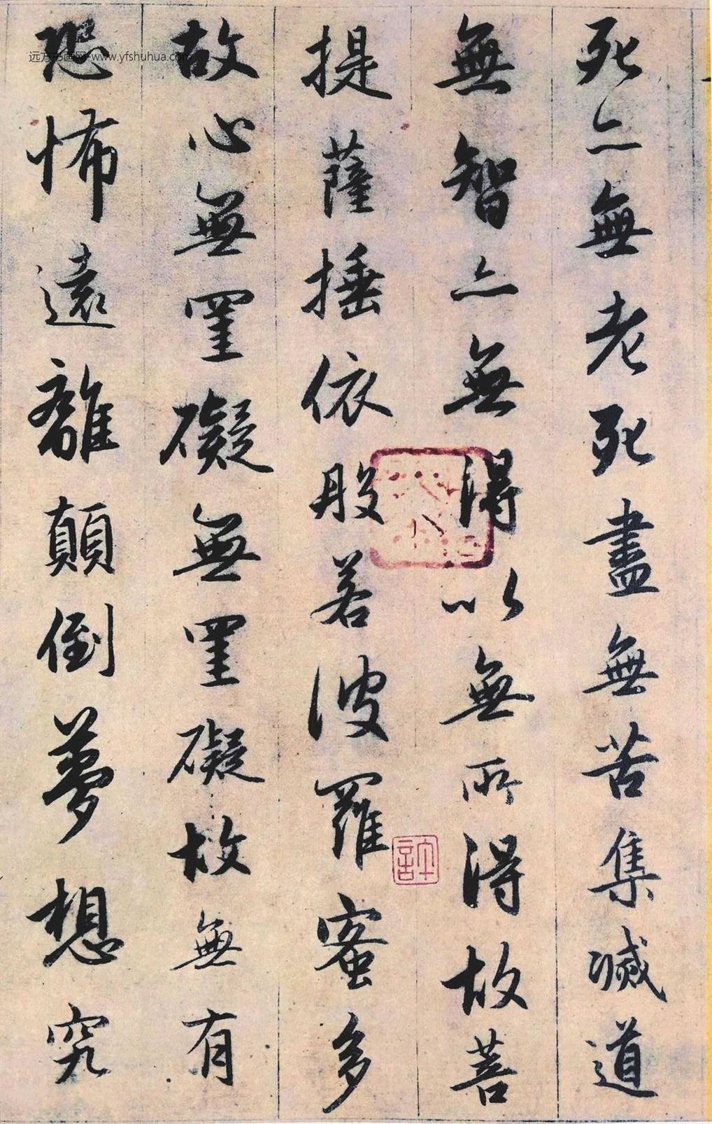 死亦無老死盡無苦集滅道
無智亦無得以無所得故菩
提薩捶依般若波羅蜜多
故心無罣礙無罣礙故無有
恐怖遠離顛倒夢想究
www.yfshuhua.com
許